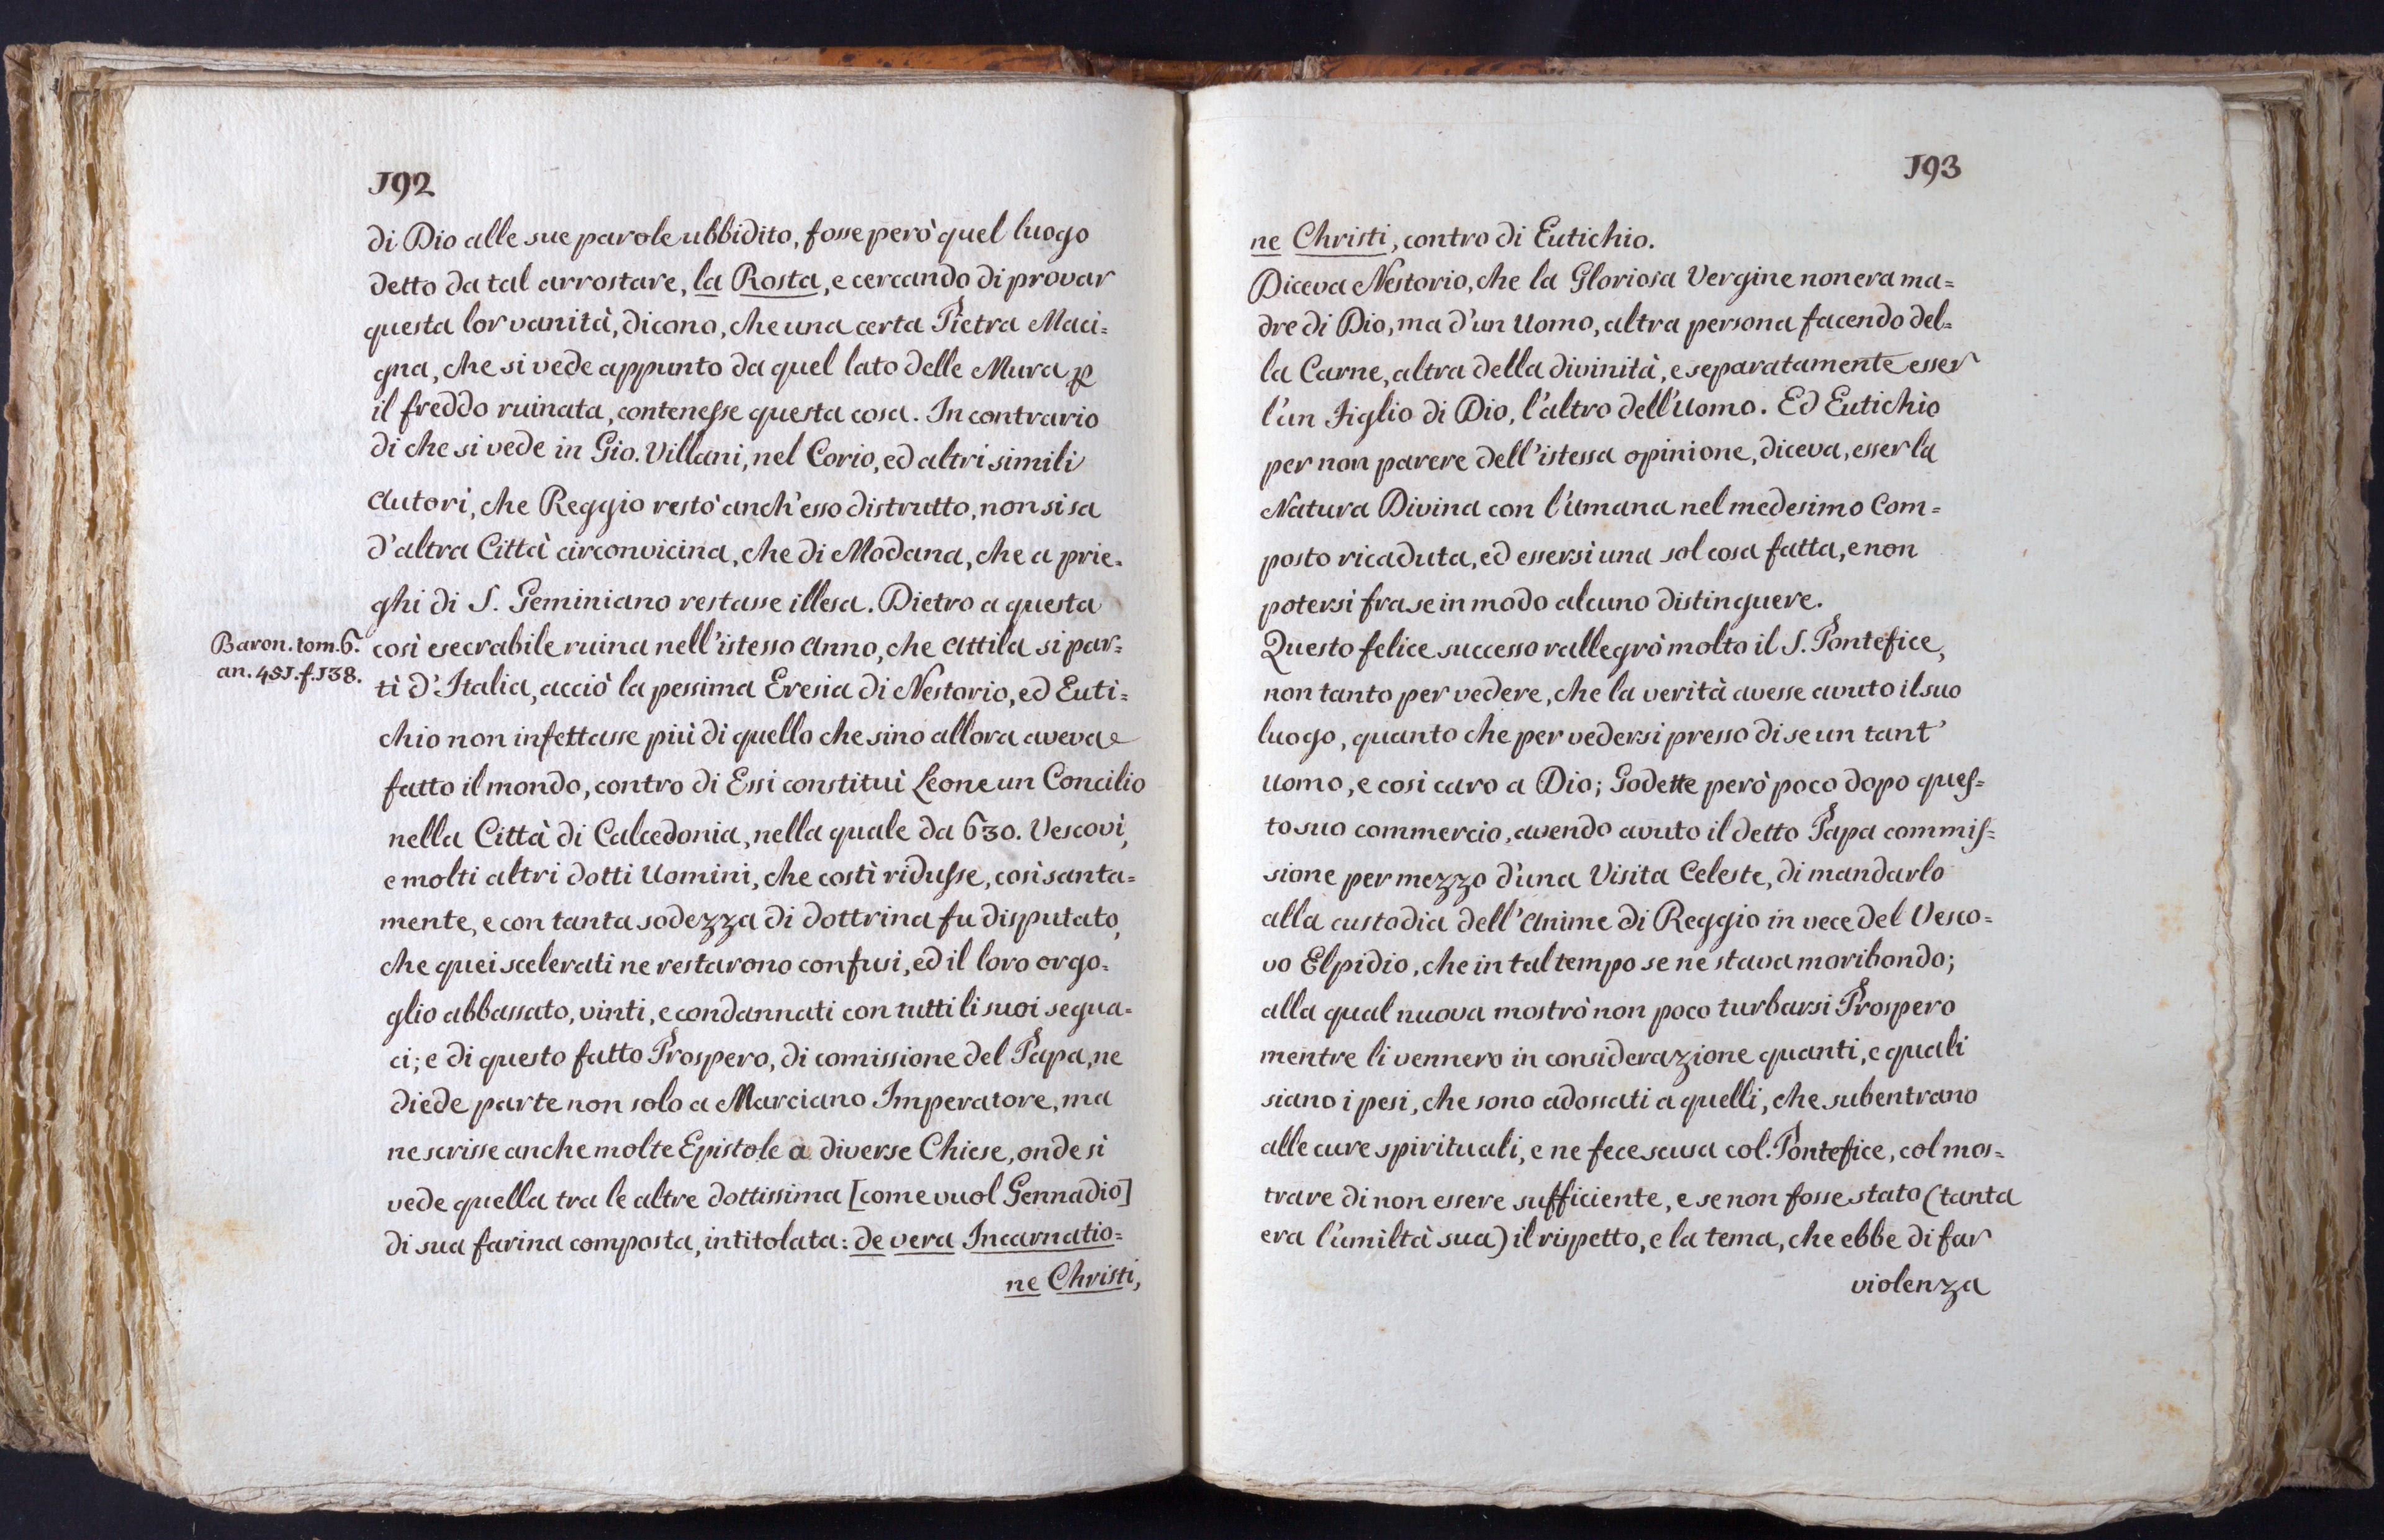 192
di Dio alle sue parole ubbidito, fosse però quel luogo
detto da tal arrostare, la Rosta, e cercando di provar
questa lor vanità, dicono, che una certa Pietra Maci=
gna, che si vede appunto da quel lato delle Mura ꝑ
il freddo ruinata, contenesse questa cosa. In contrario
di che si vede in Gio. Villani, nel Corio, ed altri simili
Autori, che Reggio restò anch'esso distrutto, non si sa
d'altra Città circonvicina, che di Modana, che a prie=
ghi di S. Geminiano restasse illesa. Dietro a questa
Baron. tom. 6.
an. 451. f. 138.
così esecrabile ruina nell'istesso Anno, che Attila si par=
tì d'Italia, acciò la pessima Eresia di Nestorio, ed Euti=
chio non infettasse più di quello che sino allora aveva
fatto il mondo, contro di Essi constituì Leone un Concilio
nella Città di Calcedonia, nella quale da 630. Vescovi,
e molti altri dotti Uomini, che costì ridusse, così santa=
mente, e con tanta sodezza di dottrina fu disputato,
che quei scelerati ne restarono confusi, ed il loro orgo=
glio abbassato, vinti, e condannati con tutti li suoi segua=
ci; e di questo fatto Prospero, di comissione del Papa, ne
diede parte non solo a Marciano Imperatore, ma
ne scrisse anche molte Epistole a diverse Chiese, onde si
vede quella tra le altre dottissima [come vuol Gennadio]
di sua farina composta, intitolata: de vera Incarnatio=
ne Christi,
193
ne Christi, contro di Eutichio.
Diceva Nestorio, che la Gloriosa Vergine non era ma=
dre di Dio, ma d'un Uomo, altra persona facendo del=
la Carne, altra della divinità, e separatamente esser
l'un Figlio di Dio, l'altro dell'Uomo. Ed Eutichio
per non parere dell'istessa opinione, diceva, esser la
Natura Divina con l'Umana nel medesimo Com=
posto ricaduta, ed essersi una sol cosa fatta, e non
potersi fra se in modo alcuno distinguere.
Questo felice successo rallegrò molto il S. Pontefice,
non tanto per vedere, che la verità avesse avuto il suo
luogo, quanto che per vedersi presso di se un tant'
Uomo, e così caro a Dio; Godette però poco dopo ques=
to suo commercio, avendo avuto il detto Papa commis=
sione per mezzo d'una Visita Celeste, di mandarlo
alla custodia dell'Anime di Reggio in vece del Vesco=
vo Elpidio, che in tal tempo se ne stava moribondo;
alla qual nuova mostrò non poco turbarsi Prospero
mentre li vennero in considerazione quanti, e quali
siano i pesi, che sono adossati a quelli, che subentrano
alle cure spirituali, e ne fece scusa col Pontefice, col mos=
trare di non essere sufficiente, e se non fosse stato (tanta
era l'umiltà sua) il rispetto, e la tema, che ebbe di far
violenza